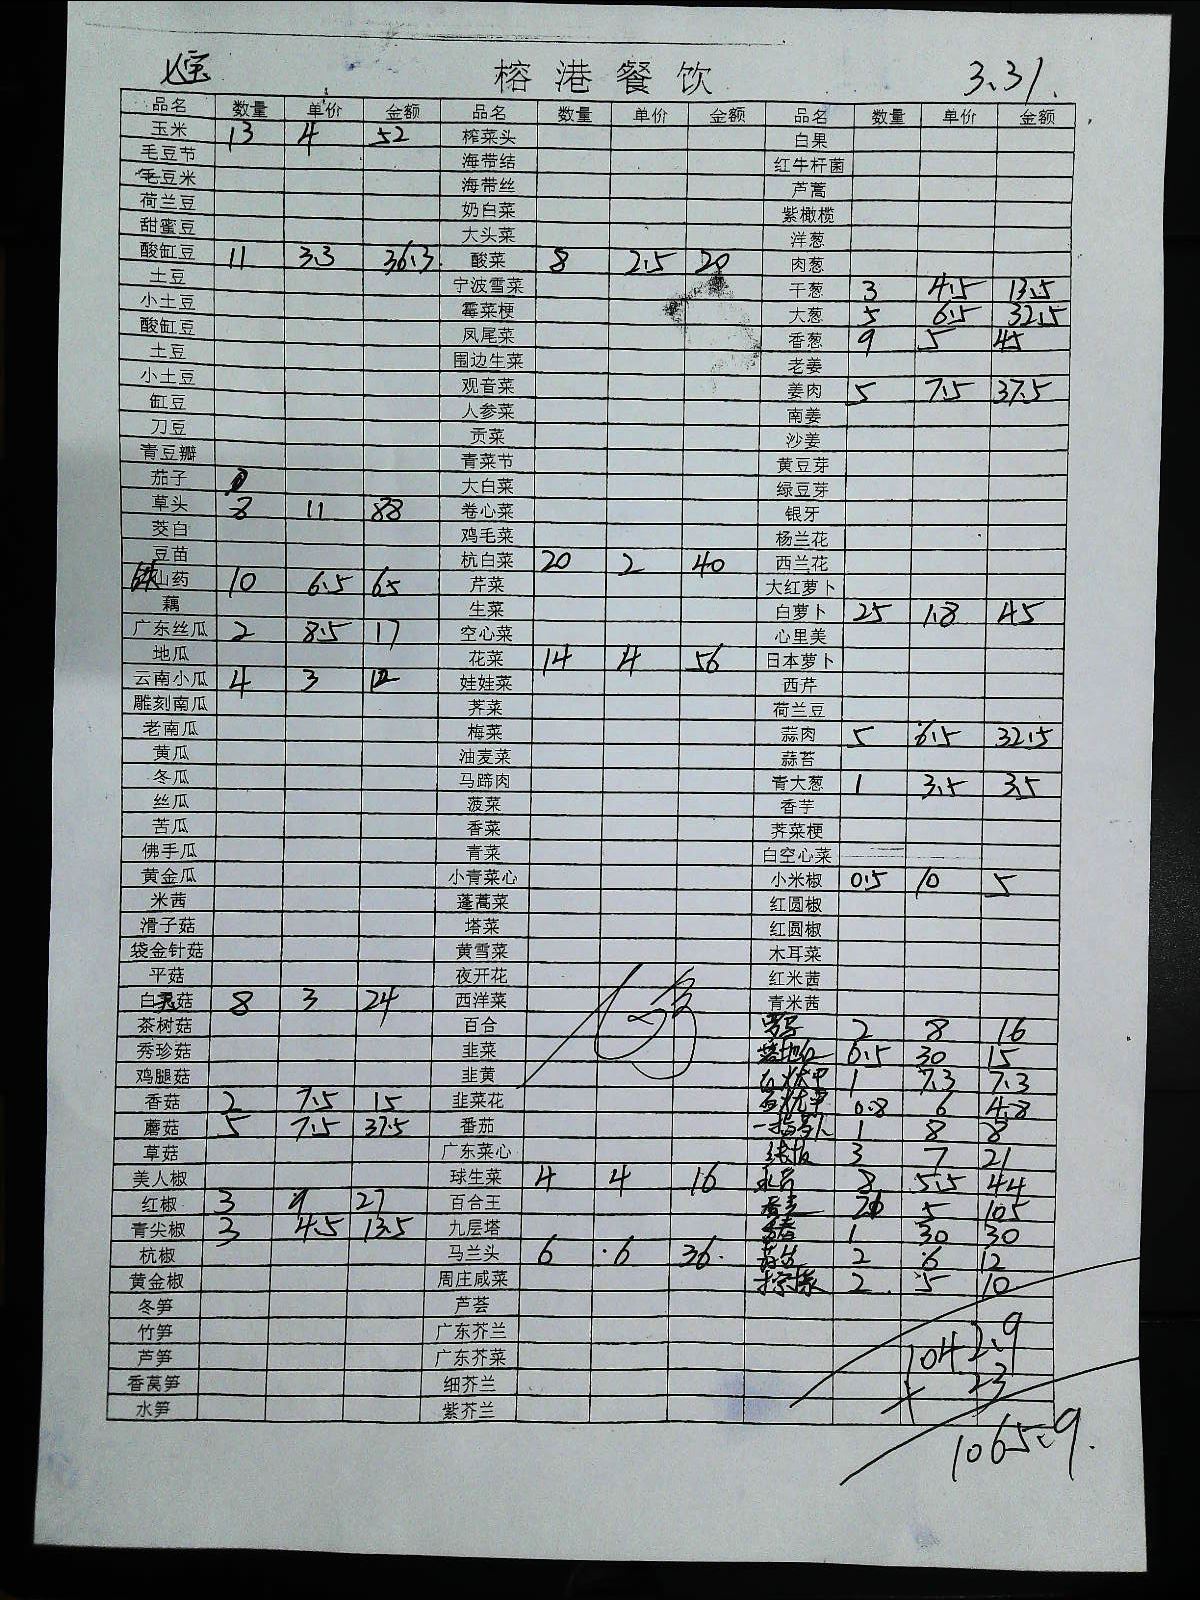 榕港餐饮 3.31.
品名 数量 单价 金额 品名 数量 单价 金额 品名 数量 单价 金额
玉米 13 4 52 榨菜头 白果
毛豆节 海带结 红牛杆菌
毛豆米 海带丝 芦蒿
荷兰豆 奶白菜 紫橄榄
甜蜜豆 大头菜 洋葱
酸缸豆 11 3.3 36.3. 酸菜 8 2.5 20 肉葱
土豆 宁波雪菜 干葱 3 4.5 13.5
小土豆 霉菜梗 大葱 5 6.5 32.5
酸缸豆 凤尾菜 香葱 9 5 45
土豆 围边生菜 老姜
小土豆 观音菜 姜肉 5 7.5 37.5
缸豆 人参菜 南姜
刀豆 贡菜 沙姜
青豆瓣 青菜节 黄豆芽
茄子 大白菜 绿豆芽
草头 8 11 88 卷心菜 银牙
茭白 鸡毛菜 杨兰花
豆苗 杭白菜 20 2 40 西兰花
铁山药 10 6.5 65 芹菜 大红萝卜
藕 生菜 白萝卜 25 1.8 45
广东丝瓜 2 8.5 17 空心菜 心里美
地瓜 花菜 14 4 56 日本萝卜
云南小瓜 4 3 12 娃娃菜 西芹
雕刻南瓜 荠菜 荷兰豆
老南瓜 梅菜 蒜肉 5 6.5 32.5
黄瓜 油麦菜 蒜苔
冬瓜 马蹄肉 青大葱 1 3.5 3.5
丝瓜 菠菜 香芋
苦瓜 香菜 荠菜梗
佛手瓜 青菜 白空心菜
黄金瓜 小青菜心 小米椒 0.5 10 5
米茜 蓬蒿菜 红圆椒
滑子菇 塔菜 红圆椒
袋金针菇 黄雪菜 木耳菜
平菇 夜开花 红米茜
白灵菇 8 3 24 西洋菜 青米茜
茶树菇 百合 2 8 16
秀珍菇 韭菜 0.5 30 15
鸡腿菇 韭黄 1 7.3 7.3
香菇 2 7.5 15 韭菜花 0.8 6 4.8
蘑菇 5 7.5 37.5 番茄 1 8 8
草菇 广东菜心 3 7 21
美人椒 球生菜 4 4 16 8 5.5 44
红椒 3 9 27 百合王 21 5 105
青尖椒 3 4.5 13.5 九层塔 1 30 30
杭椒 马兰头 6 6 36. 2 6 12
黄金椒 周庄咸菜 2 5 10
冬笋 芦荟
竹笋 广东芥兰 1042.9
芦笋 广东芥菜 + 23
香莴笋 细芥兰
水笋 紫芥兰 1065.9.